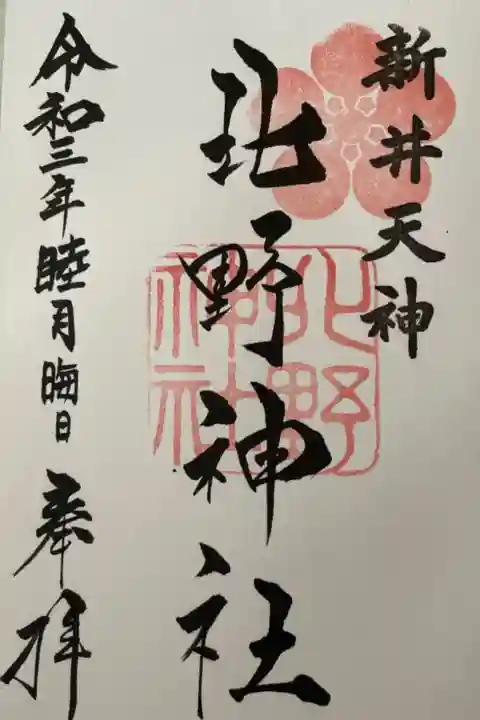 新井天神
北野神社
令和三年睦月晦日 奉拝
北野神社